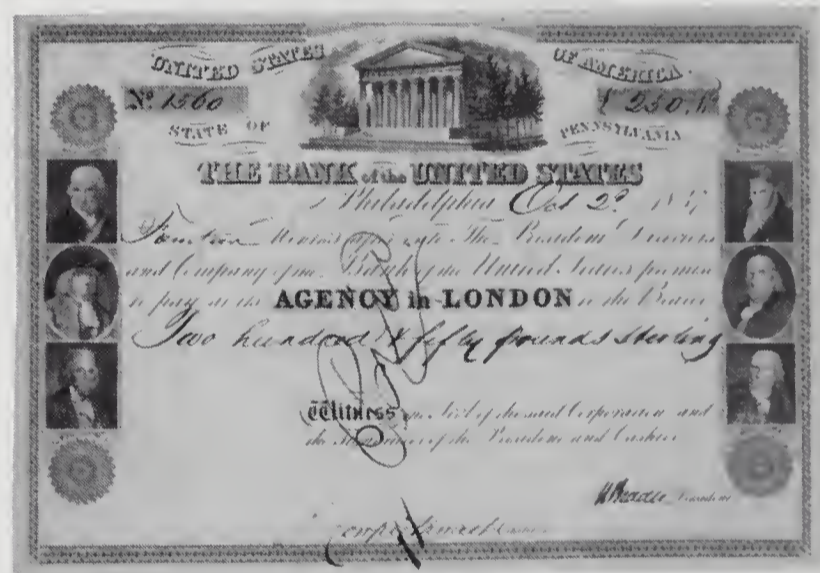 UNITED STATES OF AMERICA
No 1560 £250.
STATE OF PENNSYLVANIA
THE BANK of the UNITED STATES
Philadelphia Oct 2d 1837
Fourteen Months after date The President Directors
and Company of the Bank of the United States promise
to pay at its AGENCY in LONDON to the Bearer
Two hundred & fifty pounds sterling
Witness the Seal of the said Corporation and
the Signatures of the President and Cashier
N Biddle President
Cashier